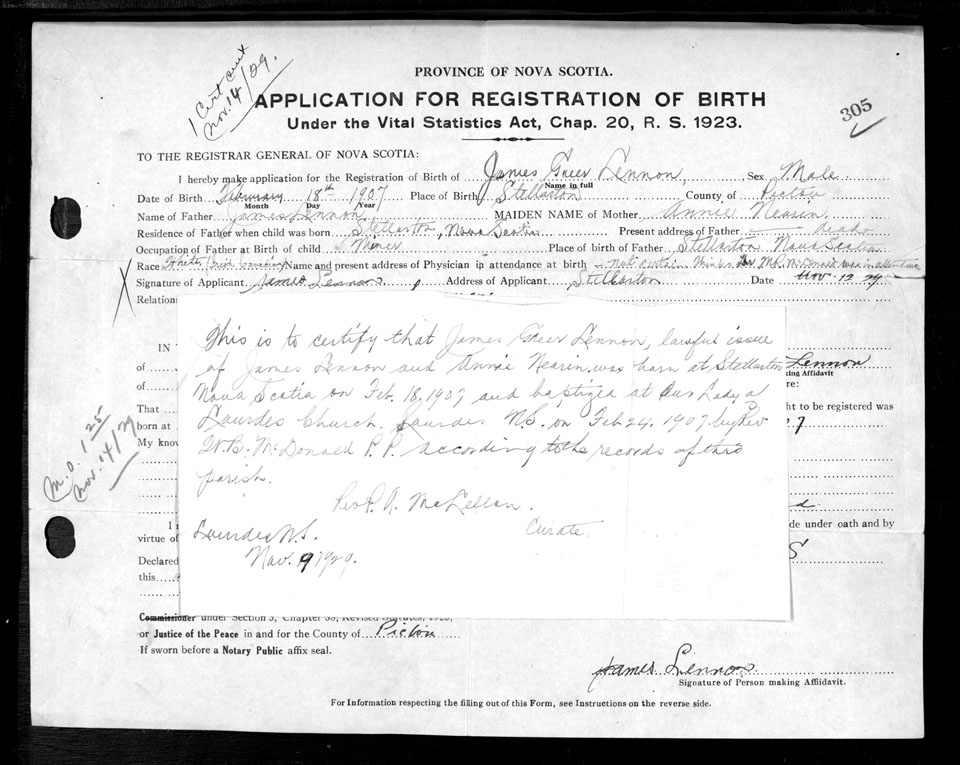 1 Cert sent
Nov. 14/29.
PROVINCE OF NOVA SCOTIA.
APPLICATION FOR REGISTRATION OF BIRTH
Under the Vital Statistics Act, Chap. 20, R. S. 1923.
305
TO THE REGISTRAR GENERAL OF NOVA SCOTIA:
I hereby make application for the Registration of Birth of James Greer Lennon, Sex Male
Name in full
Date of Birth February 18th 1907 Place of Birth Stellarton County of Pictou
Month Day Year
Name of Father James Lennon MAIDEN NAME of Mother Annie Nearin
Residence of Father when child was born Stellarton, Nova Scotia Present address of Father dead
Occupation of Father at Birth of child Miner Place of birth of Father Stellarton Nova Scotia
Race White Name and present address of Physician in attendance at birth Not certain thinks Dr McDonald was in attendance
X Signature of Applicant James Lennon Address of Applicant Stellarton Date Nov 12 29
Relations
This is to certify that James Greer Lennon, lawful issue
of James Lennon and Annie Nearin, was born at Stellarton
Nova Scotia on Feb. 18, 1907 and baptized at Our Lady of
Lourdes Church, Lourdes N.S. on Feb 24, 1907 by Rev
W. B. McDonald P.P. according to the records of this
parish.
Rev. P. A. McLellan.
Curate.
Lourdes N.S.
Nov. 9 1929.
IN T
of
of
That
born at
My know
Lennon
king Affidavit
re:
ht to be registered was
7
M.O. 1.25
Nov. 14/29
I
virtue of
de under oath and by
S
Declared
this
Commissioner under Section 3, Chapter 38, Revised Statutes, 1923,
or Justice of the Peace in and for the County of Pictou
If sworn before a Notary Public affix seal.
James Lennon
Signature of Person making Affidavit.
For Information respecting the filling out of this Form, see Instructions on the reverse side.